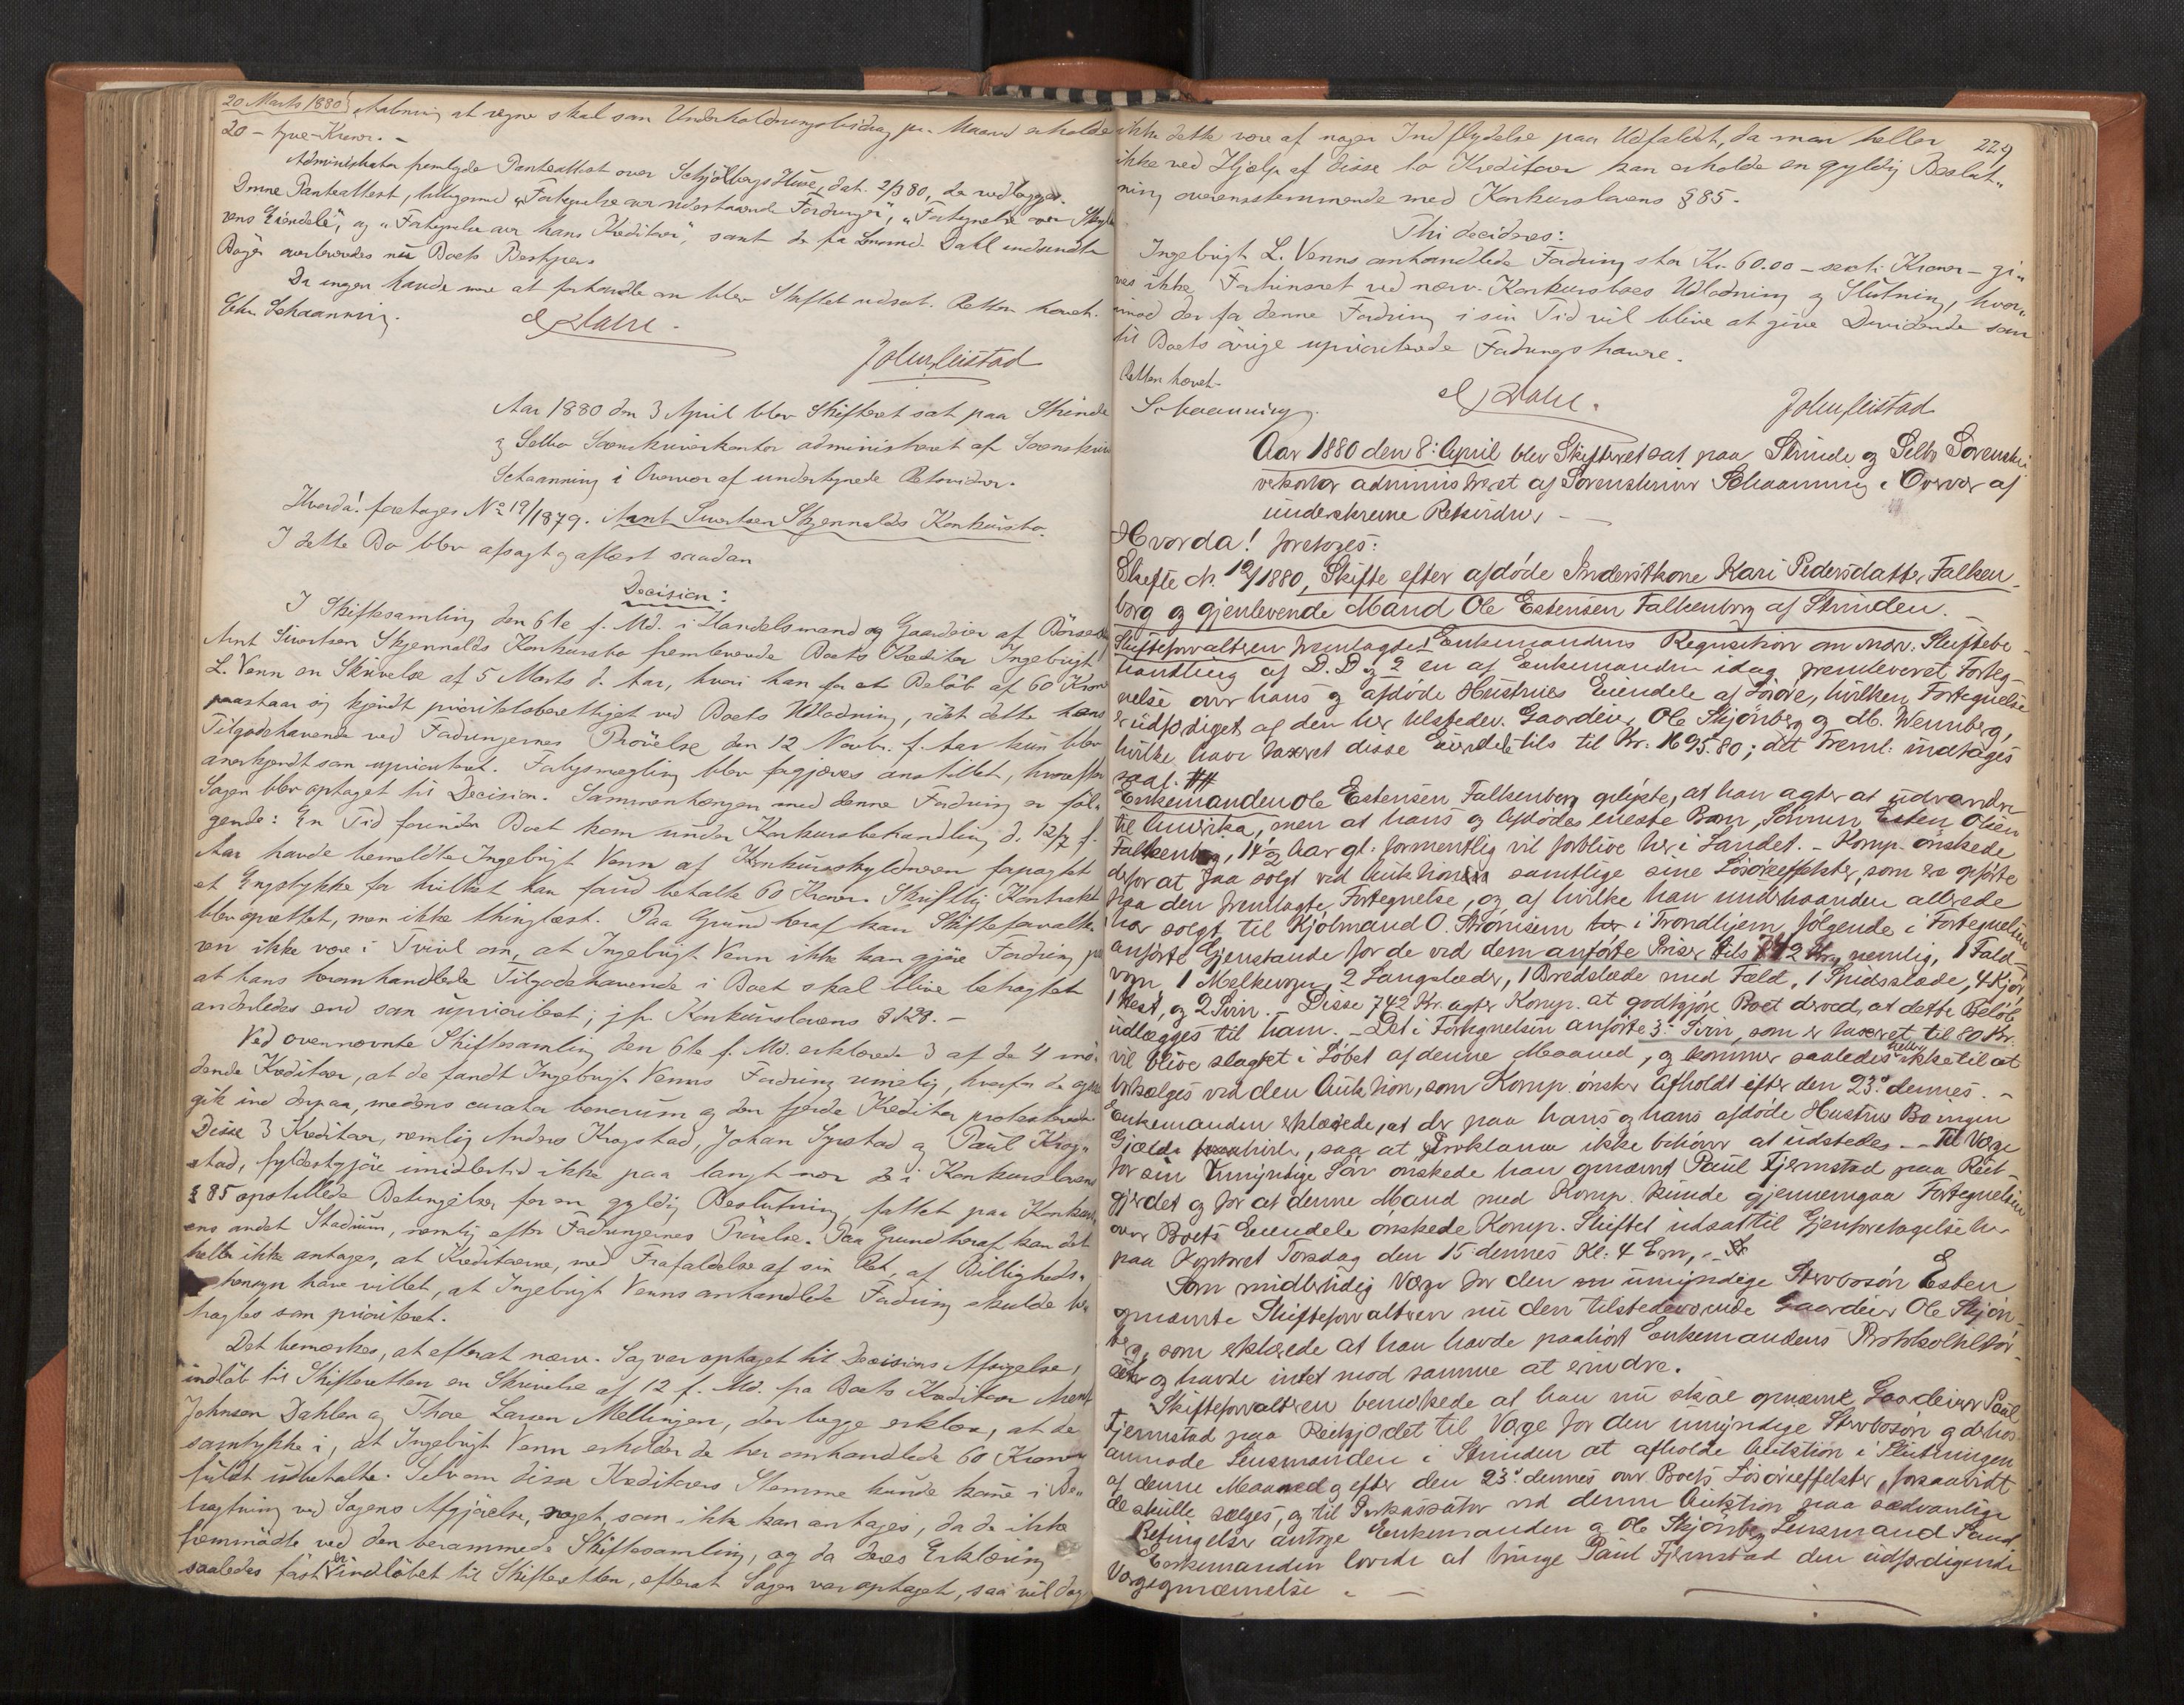 20 Marts 1880) Anledning at regne skal som Underholdningsbidrag pr. Maaned erholde
20 – tyve – Kroner. –
Administrator fremlagde Panteattest over Schjölbergs Huse, dat. 2/3 80, der vedlægges.
Denne Panteattest, tilligemed "Fortegnelse over udestaaende Fordringer", "Fortegnelse over Skyld-
nerens Eiendele", og "Fortegnelse over hans Kreditorer", samt de fra Lensmd. Dahl indsendte
Böger overleveredes nu Boets Bestyrer.
Da ingen havde mere at forhandle om blev Skiftet udsat. Retten hævet.
Schaanning.
John Leistad
Aar 1880 den 3 April blev Skifteret sat paa Strinde
og Selbo Sorenskriverkontor administreret af Sorenskriver
Schaanning i Overvær af undertegnede Retsvidner.
Hvorda! foretages No 19/1879. Arnt Sivertsen Skjennalds Konkursbo.
I dette Bo blev afsagt og aflæst saadan
Decision:
I Skiftesamling den 6te f. Md. i Handelsmand og Gaardeier af Börseskognen
Arnt Sivertsen Skjennalds Konkursbo fremleverede Boets Kreditor Ingebrigt
L. Venn en Skrivelse af 5 Marts d. Aar, hvori han for et Belöb af 60 Kroner
paastaar sig kjendt prioritetsberettiget ved Boets Udlodning, idet dette hans
Tilgodehavende ved Fordringernes Prövelse den 12 Novbr. f. Aar kun blev
anerkjendt som uprioriteret. Forligsmægling blev forgjæves anstillet, hvorefter
Sagen blev optaget til Decision. Sammenhængen med denne Fordring er föl-
gende: En Tid forinden Boet kom under Konkursbehandling d. 12/7 f.
Aar havde bemeldte Ingebrigt Venn af Konkursskyldneren forpagtet
et Engstykke for hvilket han forud betalte 60 Kroner. Skriftlig Kontrakt
blev oprettet, men ikke thinglæst. Paa Grund heraf kan Skifteforvalte-
ren ikke være i Tvivl om, at Ingebrigt Venn ikke kan gjöre Fordring paa
at hans heromhandlede Tilgodehavende i Boet skal blive betragtet
anderledes end som uprioriteret; jfr. Konkurslovens § 128. –
Ved ovennævnte Skiftesamling den 6te f. Md. erklærede 3 af de 4 mö-
dende Kreditorer, at de fandt Ingebrigt Venns Fordring rimelig, hvorfor de ogsaa
gik ind derpaa, medens curator bonorum og den fjerde Kreditor protesterede
Disse 3 Kreditorer, nemlig Anders Krogstad, Johan Syrstad og Paul Krog-
stad, fyldestgjöre imidlertid ikke paa langt nær de i Konkurslovens
§ 85 opstillede Betingelser for en gyldig Beslutning, fattet paa Konkurs-
ens andet Stadium, nemlig efter Fordringernes Prövelse. Paa Grund heraf kan det
heller ikke antages, at Kreditorerne, med Frafaldelse af sin Ret, af Billigheds-
hensyn have villet, at Ingebrigt Venns omhandlede Fordring skulde be-
tragtes som prioriteret.
Det bemærkes, at efterat nærv. Sag var optaget til Decisions Afsigelse,
indlöb til Skifteretten en Skrivelse af 12 f. Md. fra Boets Kreditorer Arent
Johnsen Dahlen og Thore Larsen Mellingen, der begge erklære, at de
samtykke i, at Ingebrigt Venn erholder de her omhandlede 60 Kroner
fuldt udbetalte. Selv om disse Kreditorers Stemme kunde komme i Be-
tragtning ved Sagens Afgjörelse, noget, som ikke kan antages, da de ikke
fremmödte ved den berammede Skiftesamling, og da deres Erklæring
saaledes först er indlöbet til Skifteretten, efterat Sagen var optaget, saa vil dog
229
ikke dette være af nogen Indflydelse paa Udfaldet, da man heller
ikke ved Hjælp af disse to Kreditorer kan erholde en gyldig Beslut-
ning overensstemmende med Konkurslovens § 85.
Thi decideres:
Ingebrigt L. Venns omhandlede Fordring stor Kr. 60.00 – sexti Kroner – gi-
ves ikke Fortrinsret ved nærv. Konkursboes Udlodning og Slutning, hvor-
imod der for denne Fordring i sin Tid vil blive at give Dividende som
til Boets övrige uprioriterede Fordringshavere.
Retten hævet.
Schaanning.
John Leistad
Aar 1880 den 8: April blev Skifteret sat paa Strinde og Selbo Sorenskri-
verkontor administreret af Sorenskriver Schaanning i Overvær af
underskrevne Retsvidner –
Hvorda! foretoges:
Skifte No. 19/1880, Skifte efter afdöde Inderstkone Kari Pedersdatter Falken-
borg og gjenlevende Mand Ole Estensen Falkenborg af Strinden.
Skifteforvalteren fremlagde 1 Enkemandens Reqvisition om nærv. Skiftebe-
handling af D. D og 2 en af Enkemanden idag fremleveret Forteg-
nelse over hans og afdöde Hustrues Eiendele af Lösöre, hvilken Fortegnelse
er udfærdiget af den her tilstedev. Gaardeier Ole Skjönberg og M. Wennberg,
hvilke have taxeret disse Eiendele tils til Kr. 1695.80; det Freml. indtages
saal. ##
Enkemanden Ole Estensen Falkenborg oplyste, at han agter at udvandre
til Amerika, men at hans og Afdödes eneste Barn, Sönnen Esten Olsen
Falkenborg, 14 1/2 Aar gl. formentlig vil forblive her i Landet. – Komp. önskede
derfor at faa solgt ved Auktion samtlige sine Lösöreeffekter, som ere opförte
paa den fremlagte Fortegnelse, og af hvilke han underhaanden allerede
har solgt til Kjölmand O. Strönisem i Trondhjem fölgende i Fortegnelsen
anförte Gjenstande for de ved dem anförte Priser tils 742 Kr, nemlig, 1 Fald-
vogn 1 Mælkevogn, 2 Langslæder, 1 Bredslæde med Fæld, 1 Spidsslæde, 4 Kjör,
1 Hest, og 2 Svin. – Disse 742 Kr. agter Komp. at godtgjöre Boet derved, at dette Belöb
udlægges til ham. – Det i Fortegnelsen anförte 3: Svin, som er taxeret til 80 Kr.
vil blive slagtet i Löbet af denne Maaned, og kommer saaledes heller ikke til at
forsælges ved den Auktion, som Komp. önsker afholdt efter den 23: dennes. –
Enkemanden erklærede, at der paa hans og hans afdöde Hustrus Bo ingen
Gjæld, saa at Proklama ikke behöver at udstedes. – Til Værge
for sin umyndige Sön önskede han opnævnt Paul Fjermstad paa Reit-
gjerdet og for at denne Mand med Komp. kunde gjennemgaa Fortegnelsen
over Boets Eiendele önskede Komp. Skiftet udsat til Gjenforetagelse her
paa Kontoret Torsdag den 15: dennes Kl: 4 Em, –
Som midlertidig Værge for den umyndige Stervbosön Esten
opnævnte Skifteforvalteren nu den tilstedeværende Gaardeier Ole Skjön-
berg, som erklærede at han havde paahört Enkemandens Protokoltilför-
sel og havde intet mod samme at erindre.
Skifteforvalteren bemærkede at han nu skal opnævne Gaardeier Paul
Fjermstad paa Reitgjerdet til Værge for den umyndige Stervbosön og derhos
anmode Lensmanden i Strinden at afholde Auktion i Slutningen
af denne Maaned og efter den 23: dennes over Boets Lösöreeffekter, forsaavidt
de skulle sælges, og til Inkassator ved denne Auktion paa sædvanlige
Betingelser antoge Enkemanden og Ole Skjönberg Lensmand Saud.
Enkemanden lovede at bringe Paul Fjermstad den udfærdigende
Værgeopnævnelse. –